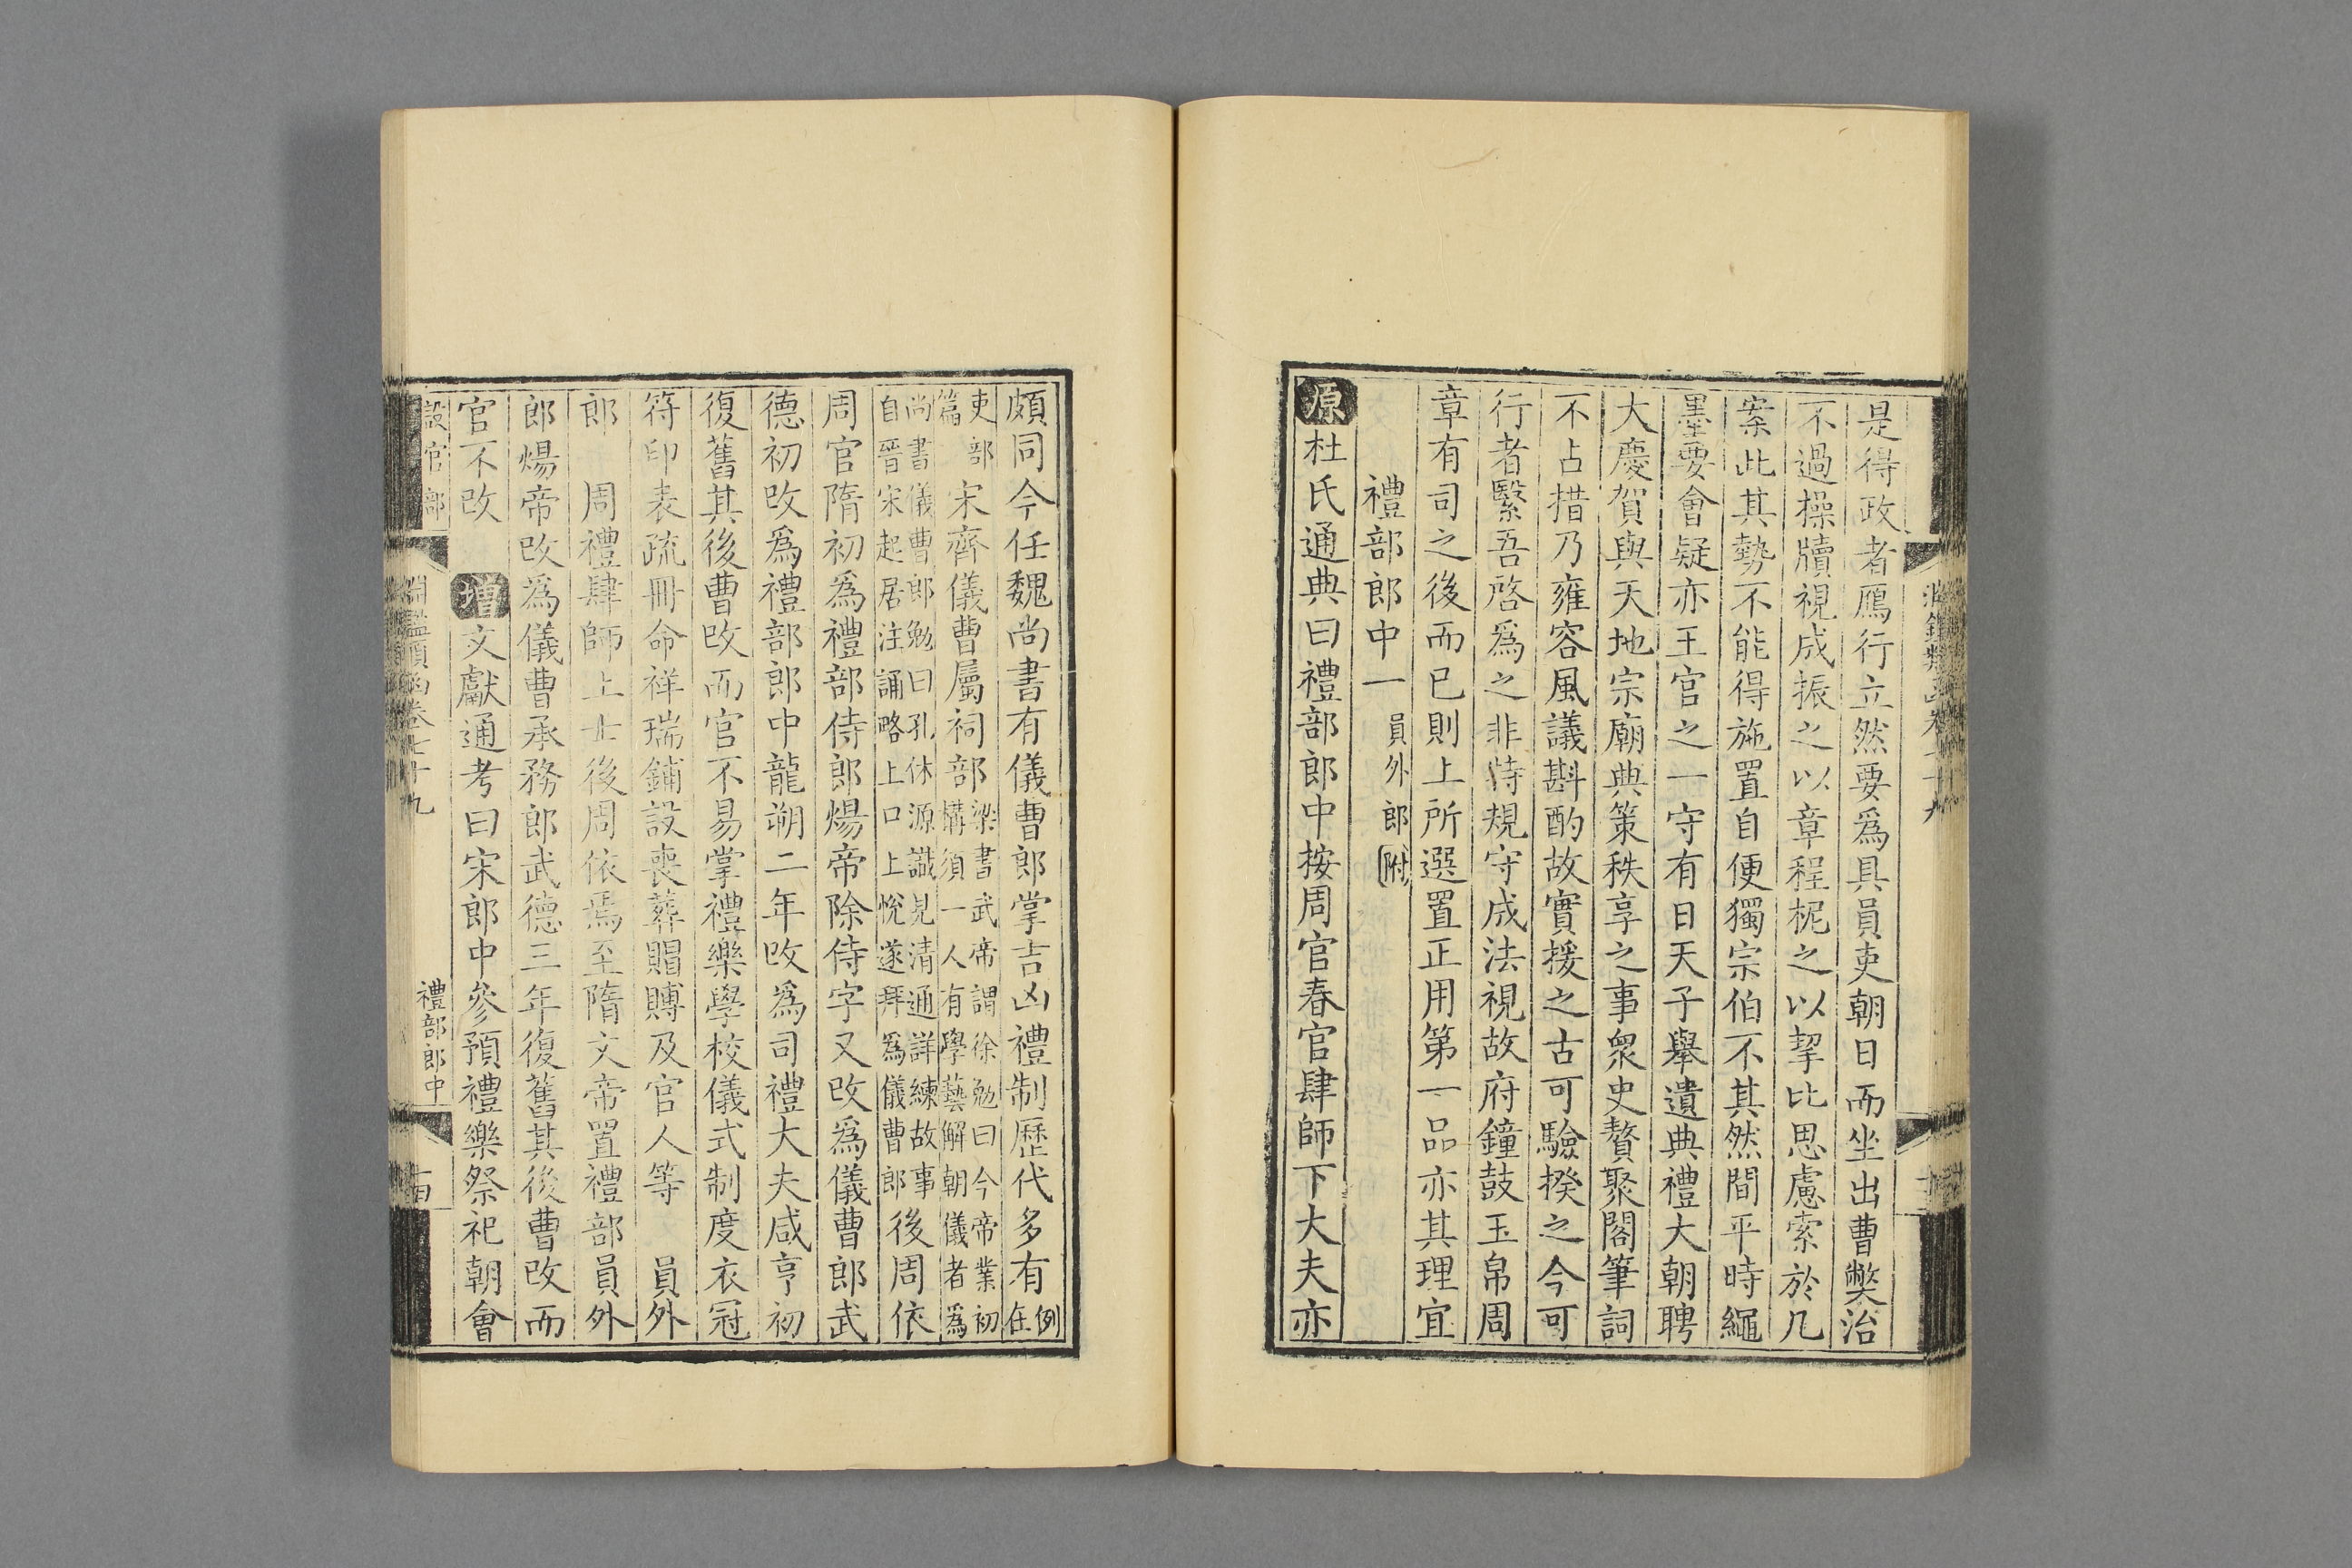 是得政者鴈行立然要爲具員吏朝日而坐出曹獘治
不過操牘視成振之以章程柅之以挈比思慮索於几
案此其勢不能得施置自便獨宗伯不其然間平時繩
墨要會疑亦王官之一守有日天子舉遺典禮大朝聘
大慶賀與天地宗廟典策秩享之事衆史贅聚閣筆詞
不占措乃雍容風議斟酌故實援之古可驗揆之今可
行者繄吾啓爲之非特規守成法視故府鐘鼓玉帛周
章有司之後而已則上所選置正用第一品亦其理宜
禮部郎中一 員外郎附
原杜氏通典曰禮部郎中按周官春官肆師下大夫亦
頗同今任魏尚書有儀曹郎掌吉凶禮制歷代多有例在
吏部篇 宋齊儀曹屬祠部梁書武帝謂徐勉曰今帝業初構須一人有學藝解朝儀者爲
尚書儀曹郎勉曰孔休源識見清通詳練故事自晉宋起居注誦略上口上悅遂拜爲儀曹郎後周依
周官隋初爲禮部侍郎煬帝除侍字又改爲儀曹郎武
德初改爲禮部郎中龍朔二年改爲司禮大夫咸亨初
復舊其後曹改而官不易掌禮樂學校儀式制度衣冠
符印表疏冊命祥瑞鋪設喪葬賵賻及官人等 員外
郎 周禮肆師上士後周依焉至隋文帝置禮部員外
郎煬帝改爲儀曹承務郎武德三年復舊其後曹改而
官不改 增文獻通考曰宋郎中參預禮樂祭祀朝會
設官部 淵鑑類函卷七十九 禮部郎中